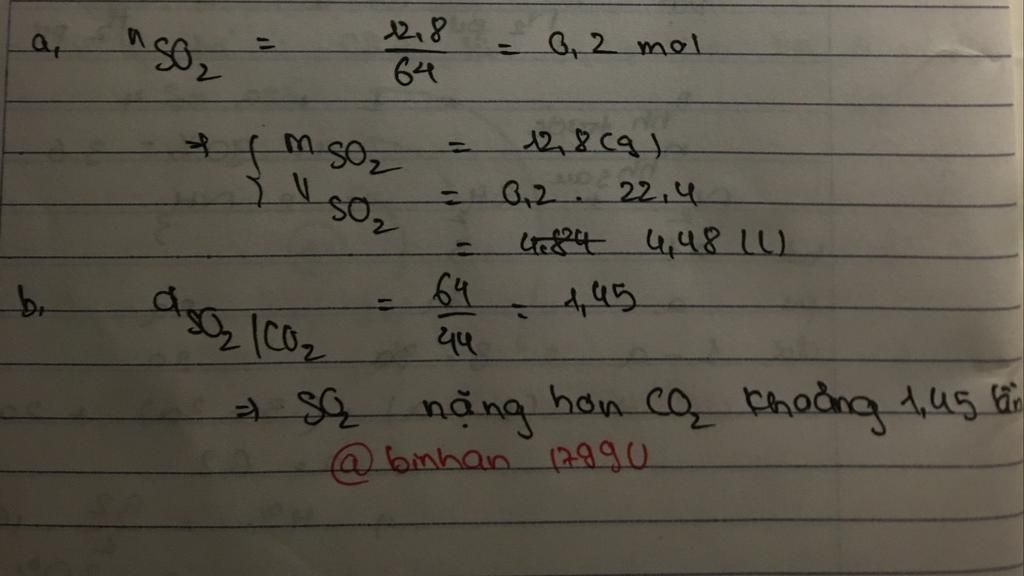 a, nSO2 = 12,8/64 = 0,2 mol
→ { mSO2 = 12,8(g)
VSO2 = 0,2 . 22,4
= 4,824 4,48 (L)
b, dSO2/CO2 = 64/44 = 1,45
⇒ SO2 nặng hơn CO2 khoảng 1,45 lần
@binhan